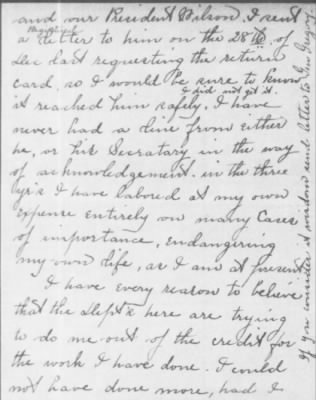 and our President Wilson. I sent
a letter to him on the 28th of
Dec last requesting the return
card, so I would be sure to know
I did not get it.
it reached him safely, I have
never had a line from either
he, or his Secratary in the way
of acknowledgement. in the three
yrs I have labored at my own
expense Entirely on many Cases
of importance, Endangering
my own life, as I am at present
I have every reason to believe
that the Dept's here are trying
to do me out of the credit for
the work I have done. I could
not have done more, had I
If you consider it wisdom send letter to Gen Gregory